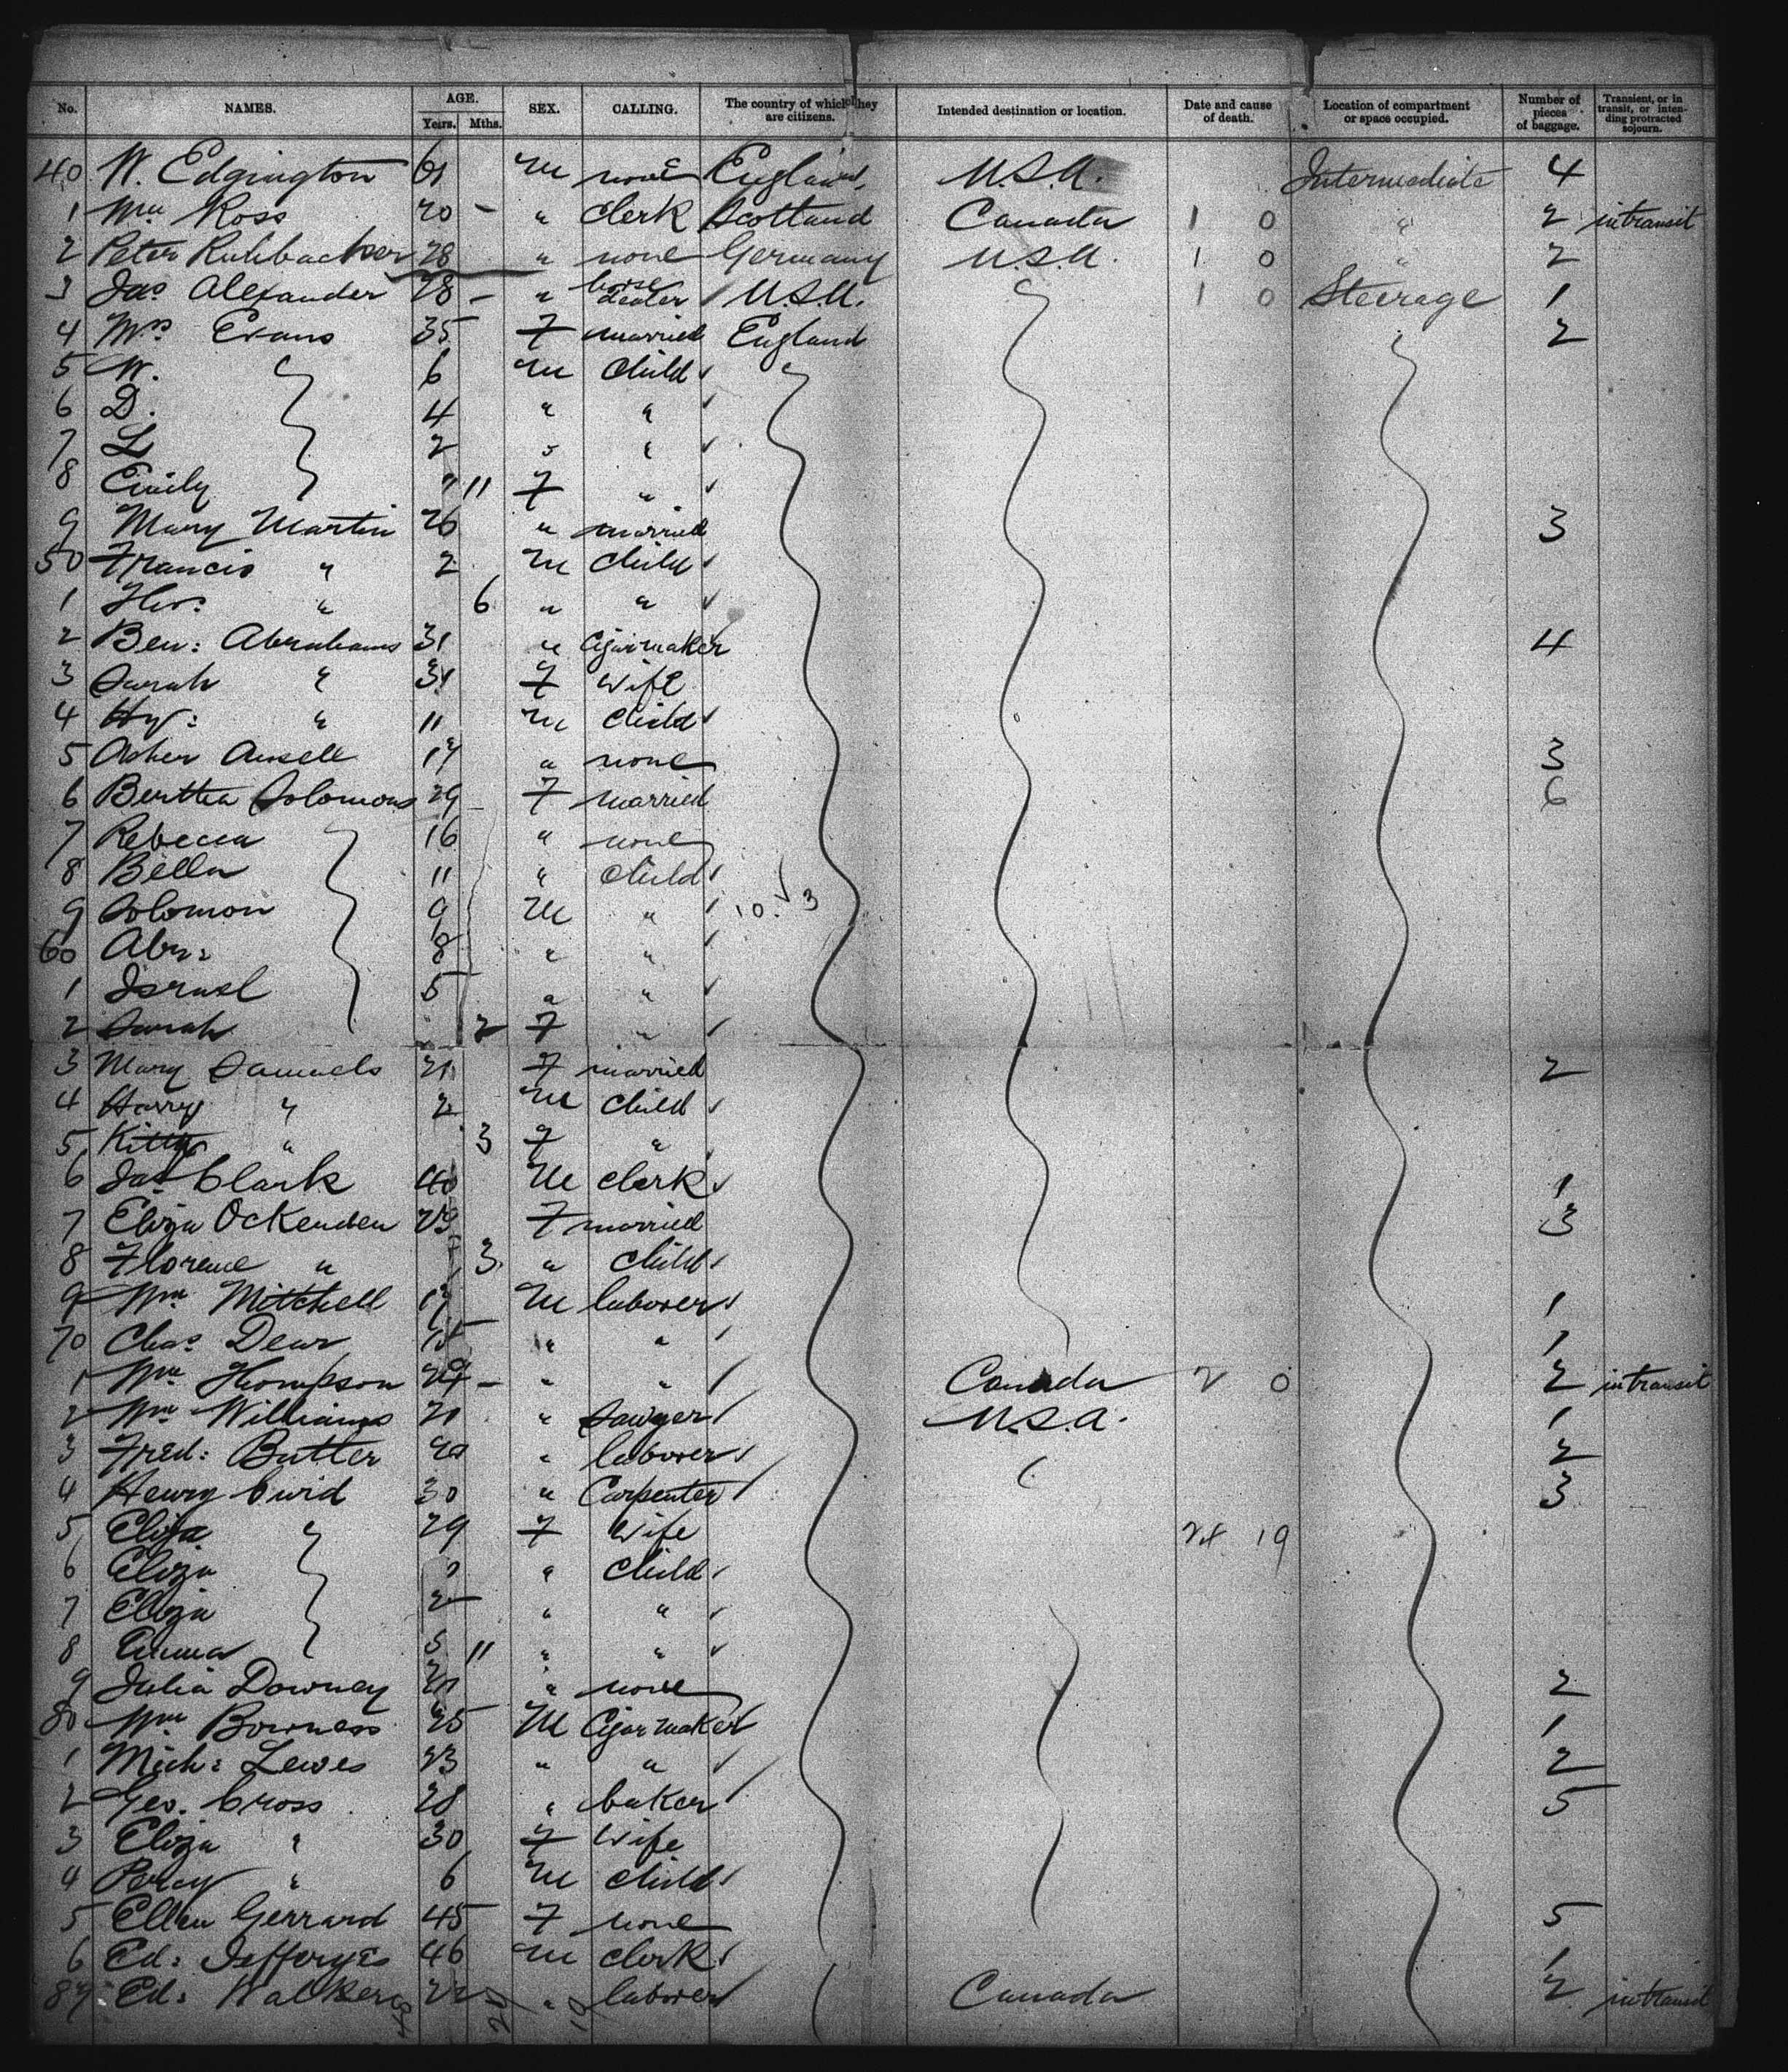 No. NAMES. AGE. Years. Mths. SEX. CALLING. The country of which they are citizens. Intended destination or location. Date and cause of death. Location of compartment or space occupied. Number of pieces of baggage. Transient, or in transit, or intending protracted sojourn.
40 W. Edgington 61 M none England U.S.A. Intermediate 4
1 Wm Ross 20 - " Clerk Scotland Canada 1 0 " 2 intransit
2 Peter Ruhbacker 28 " none Germany U.S.A. 1 0 " 2
3 Jas Alexander 28 - " horse dealer U.S.A. 1 0 Steerage 1
4 Mrs Evans 35 F married England 2
5 W. 6 M Child
6 D. 4 " "
7 L 2 " "
8 Emily 11 F "
9 Mary Martin 26 " married 3
50 Francis " 2 M child
1 " 6 " "
2 Ben: Abrahams 31 " Cigarmaker 4
3 Sarah " 31 F wife
4 Hy: " 11 M child
5 Asher Ansell 17 " none 3
6 Bertha Solomons 29 F married 6
7 Rebecca 16 " none
8 Bella 11 " child
9 Solomon 9 M " 10. 3
60 Abr: 8 " "
1 Israel 5 " "
2 Sarah 2 F "
3 Mary Samuels 21 F married 2
4 Harry " 2 M child
5 Kitty " 3 F "
6 Jas Clark 40 M clerk 1
7 Eliza Ockenden 23 F married 3
8 Florence " 3 " child
9 Wm Mitchell M laborer 1
70 Chas Dear " " 1
1 Wm Thompson 24 - " " Canada 2 0 2 intransit
2 Wm Williams " Sawyer U.S.A. 1
3 Fred: Butler " laborer 2
4 Henry Curd 30 " Carpenter 3
5 Eliza " 29 F wife 24 19
6 Eliza " child
7 Eliza 2 " "
8 Emma 11 " "
9 Julia Downey " none 2
80 Wm Bowness 25 M Cigar maker 1
1 Mich: Lewes 23 " " 2
2 Geo. Cross 28 " baker 5
3 Eliza " 30 F wife
4 Percy " 6 M child
5 Ellen Gerrard 45 F none 5
6 Ed: Jefferyes 46 M clerk 1
87 Ed: Walker 22 " laborer Canada 2 intransit